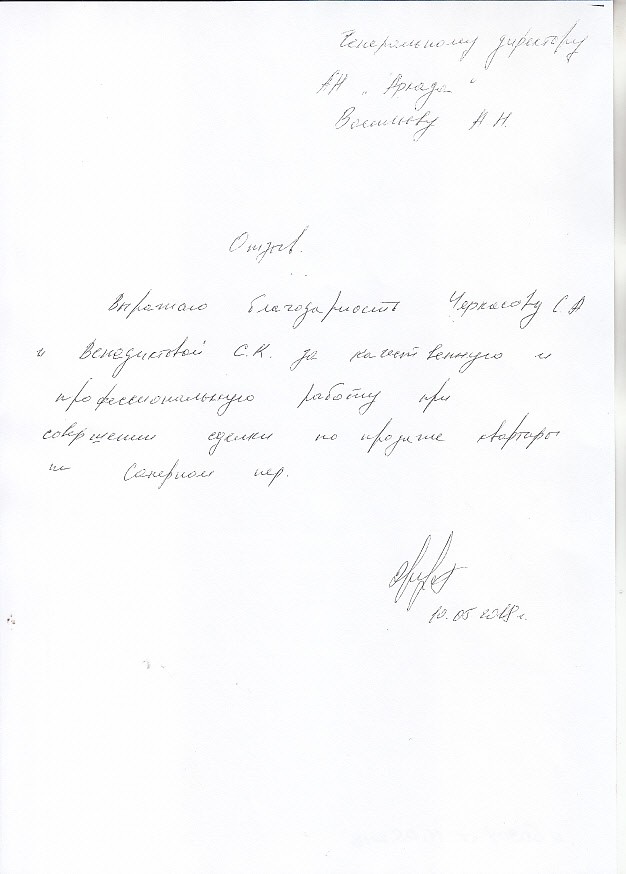 Генеральному директору
АН "Аркада"
Васильеву А.Н.
Отзыв.
Выражаю благодарность Черкасову С.А
и Венедиктовой С.К. за качественную и
профессиональную работу при
совершении сделки по продаже квартиры
на Саперном пер.
10.05 2018 г.